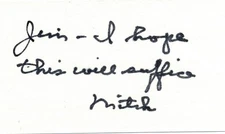 Jim - I hope
this will suffice
Mitch